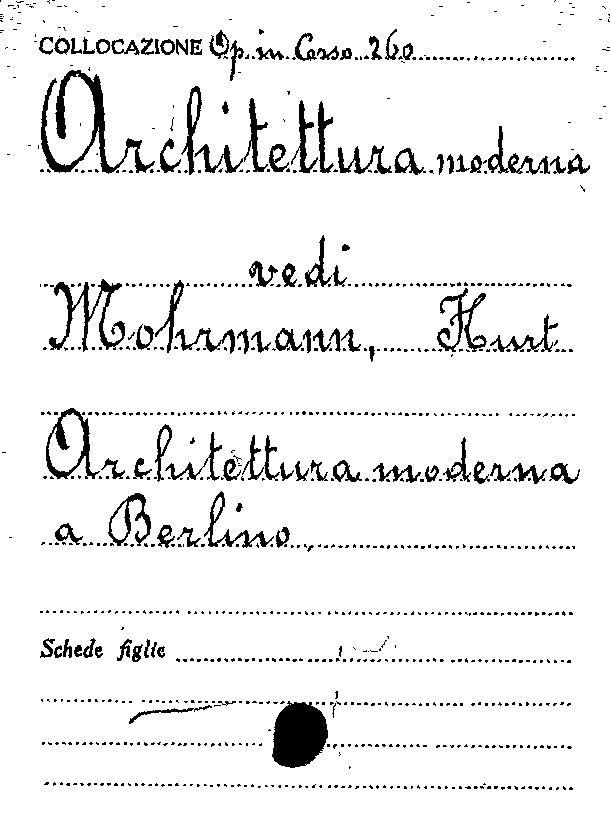 COLLOCAZIONE Op. in Corso 260
Architettura moderna
vedi
Mohrmann, Kurt
Architettura moderna
a Berlino.
Schede figlie